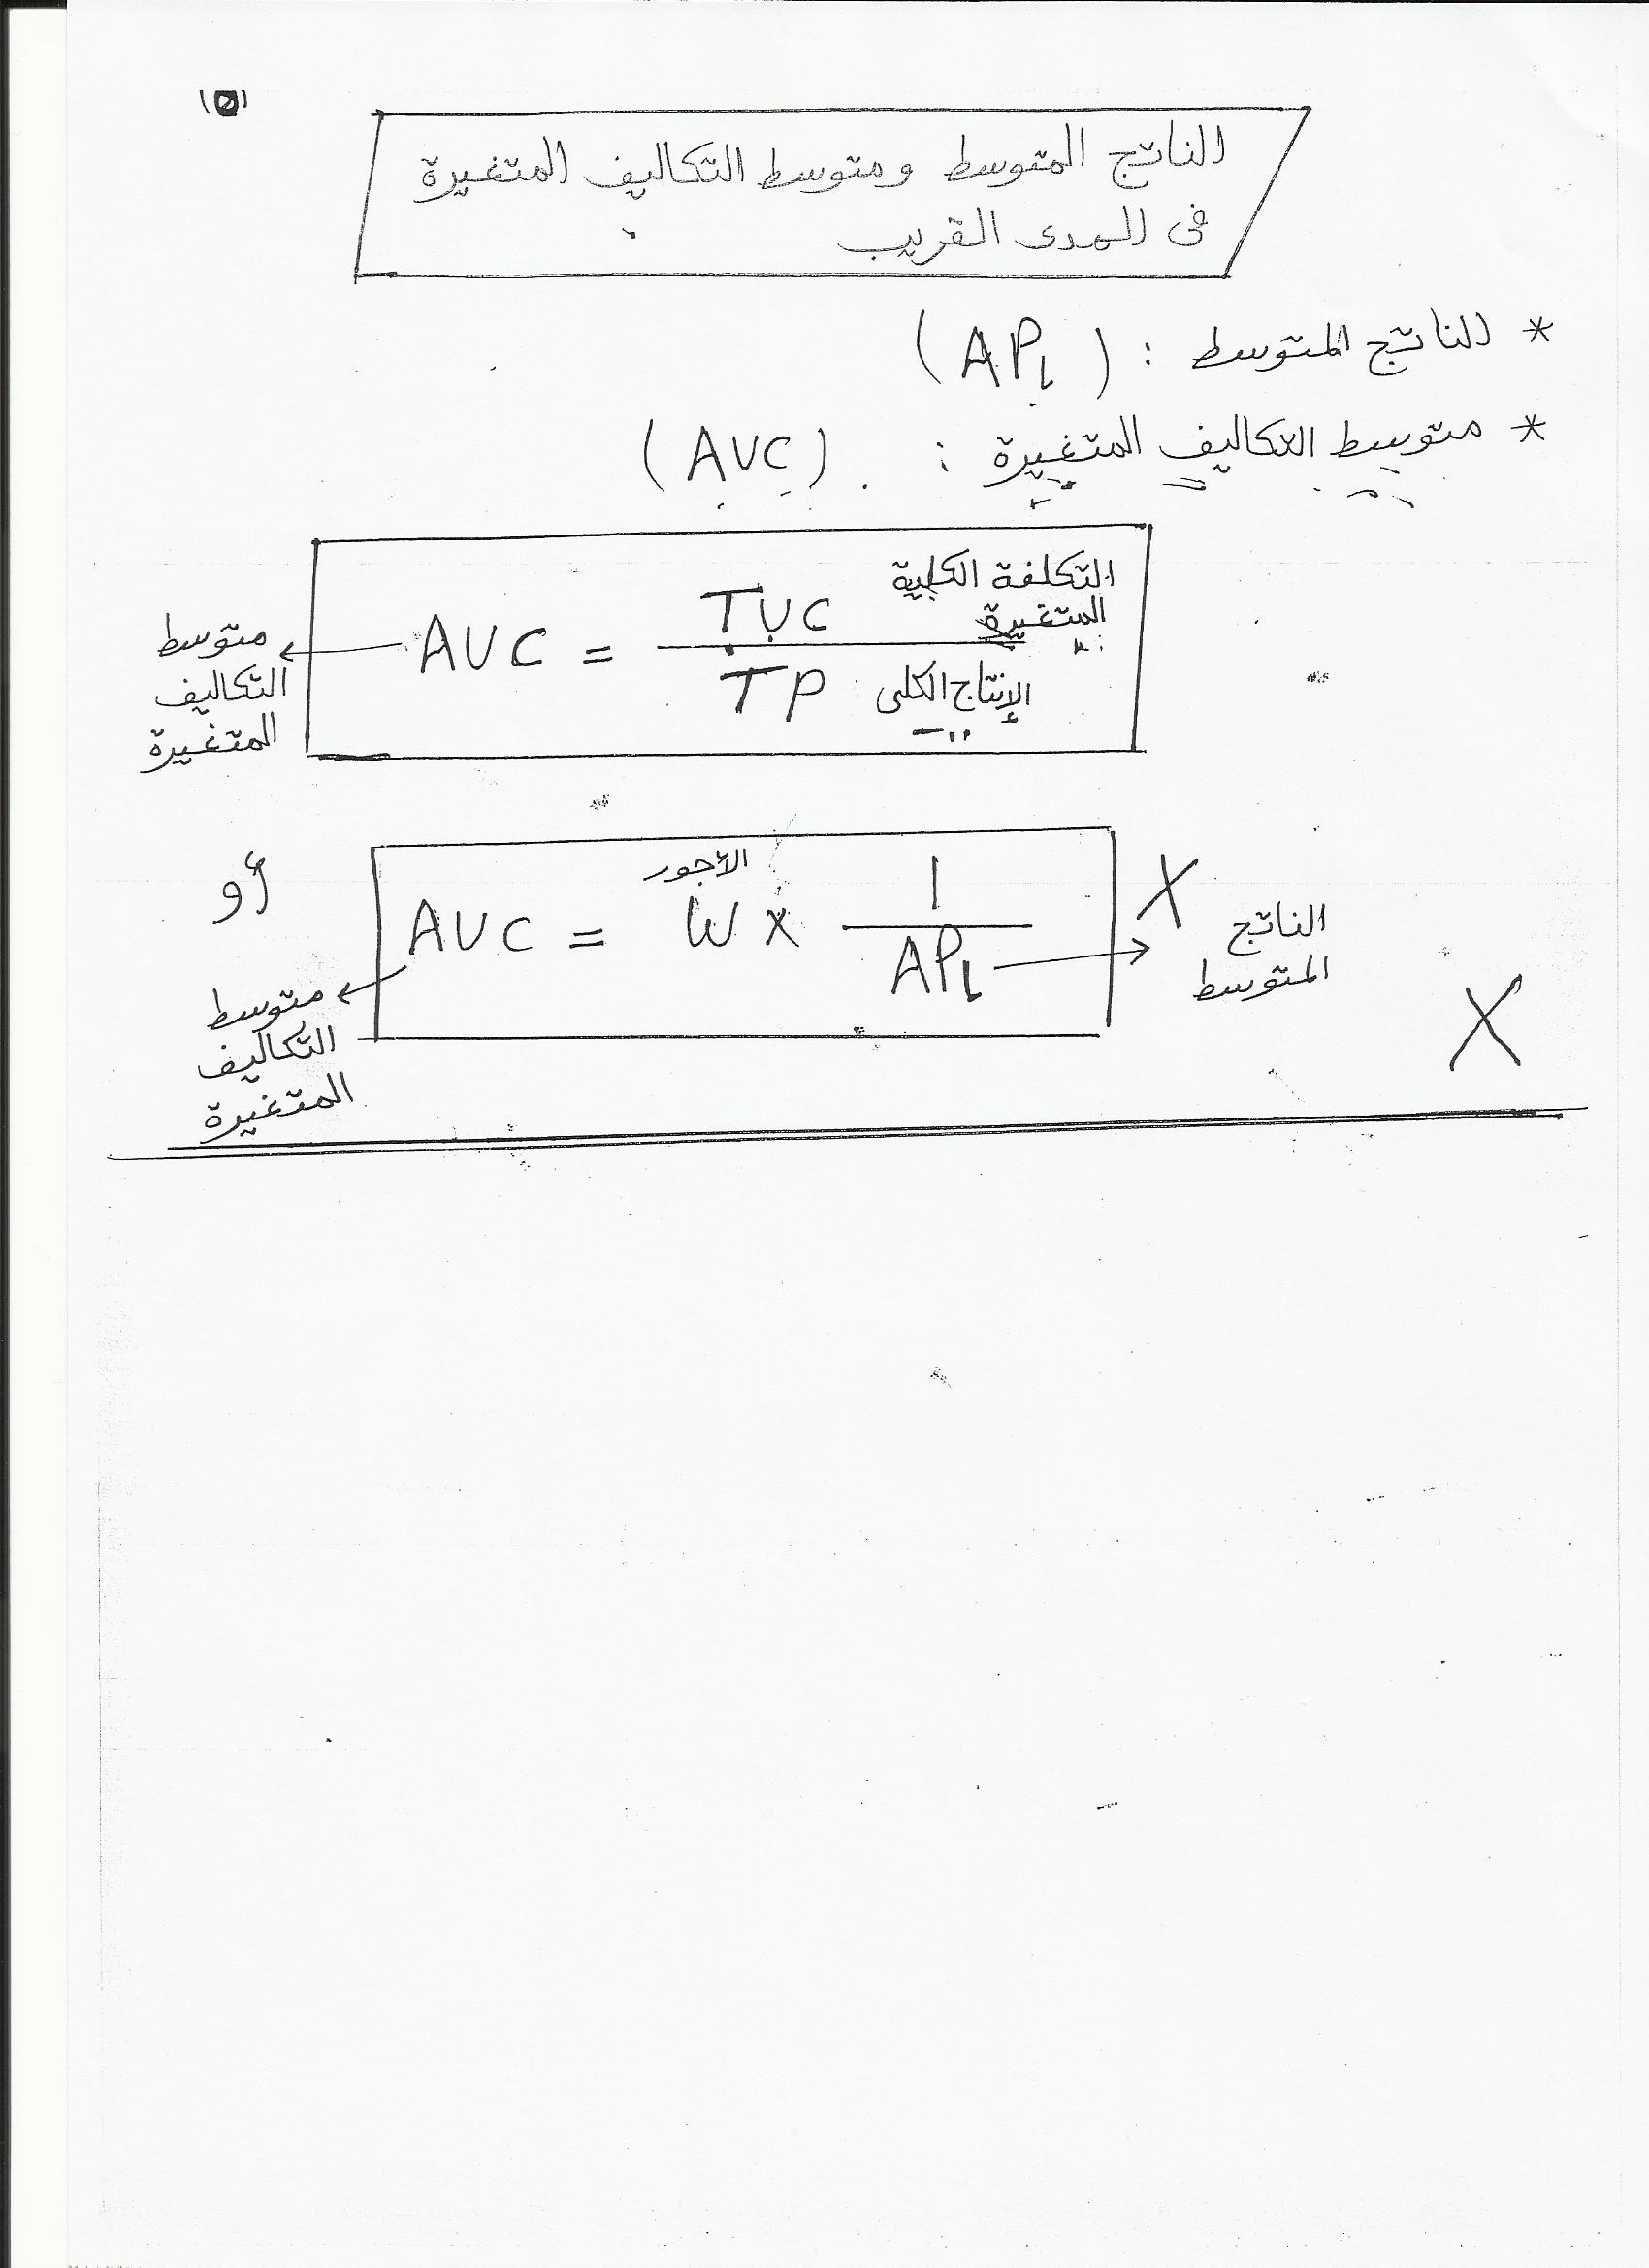 الناتج المتوسط ومتوسط التكاليف المتغيرة
فى المدى القريب
* الناتج المتوسط : (APL)
* متوسط التكاليف المتغيرة : (AVC)
التكلفة الكلية
المتغيرة
AVC = TVC / TP
الإنتاج الكلى
متوسط
التكاليف
المتغيرة
أو
الأجور
AVC = W x 1 / APL
X
الناتج
المتوسط
متوسط
التكاليف
المتغيرة
X